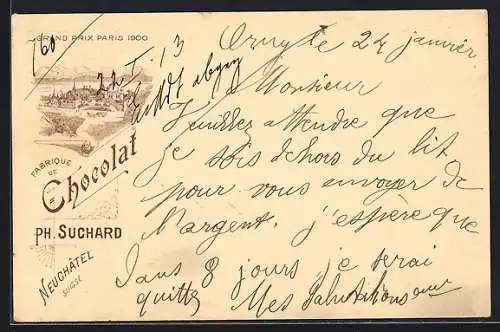 GRAND PRIX PARIS 1900
760
22 I 13
FABRIQUE
DE
Chocolat
PH. SUCHARD
NEUCHÂTEL
SUISSE
le 24 janvier
Monsieur
Veuillez attendre que
je sois dehors du lit
pour vous envoyer de
l'argent. j'espère que
Dans 8 jours je serai
quitte Mes Salutations